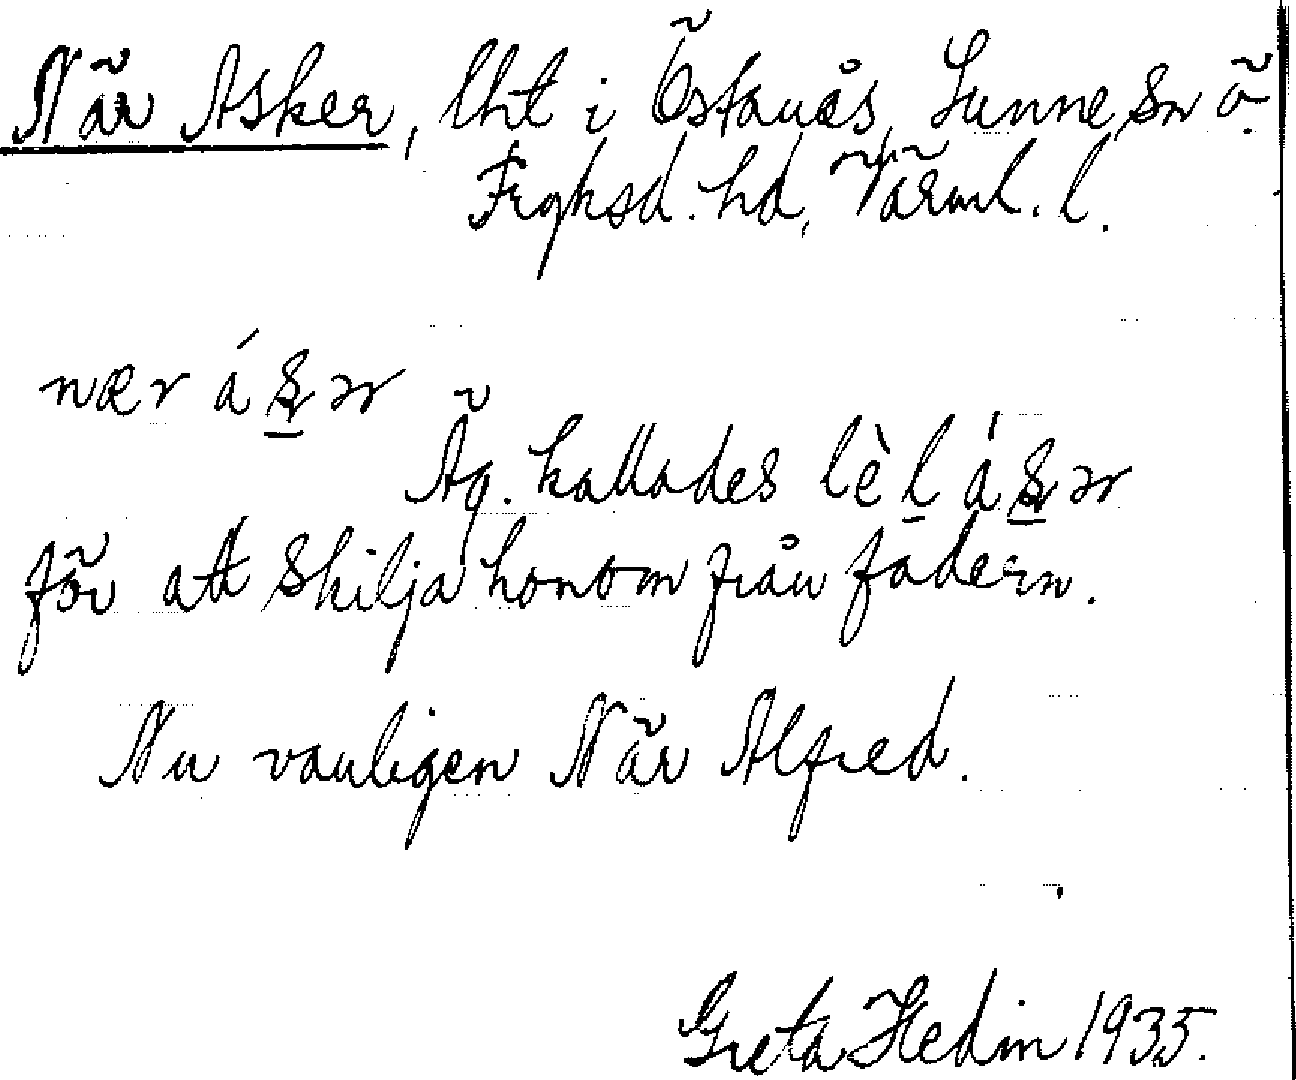 När Asker, lht i Östanås, Sunne sn ö.
Fryksd. hd, Värml. l.
nær áʂər
Äg. kallades lèl áʂər
för att skilja honom från fadern.
Nu vanligen När Alfred.
Greta Hedin 1935.